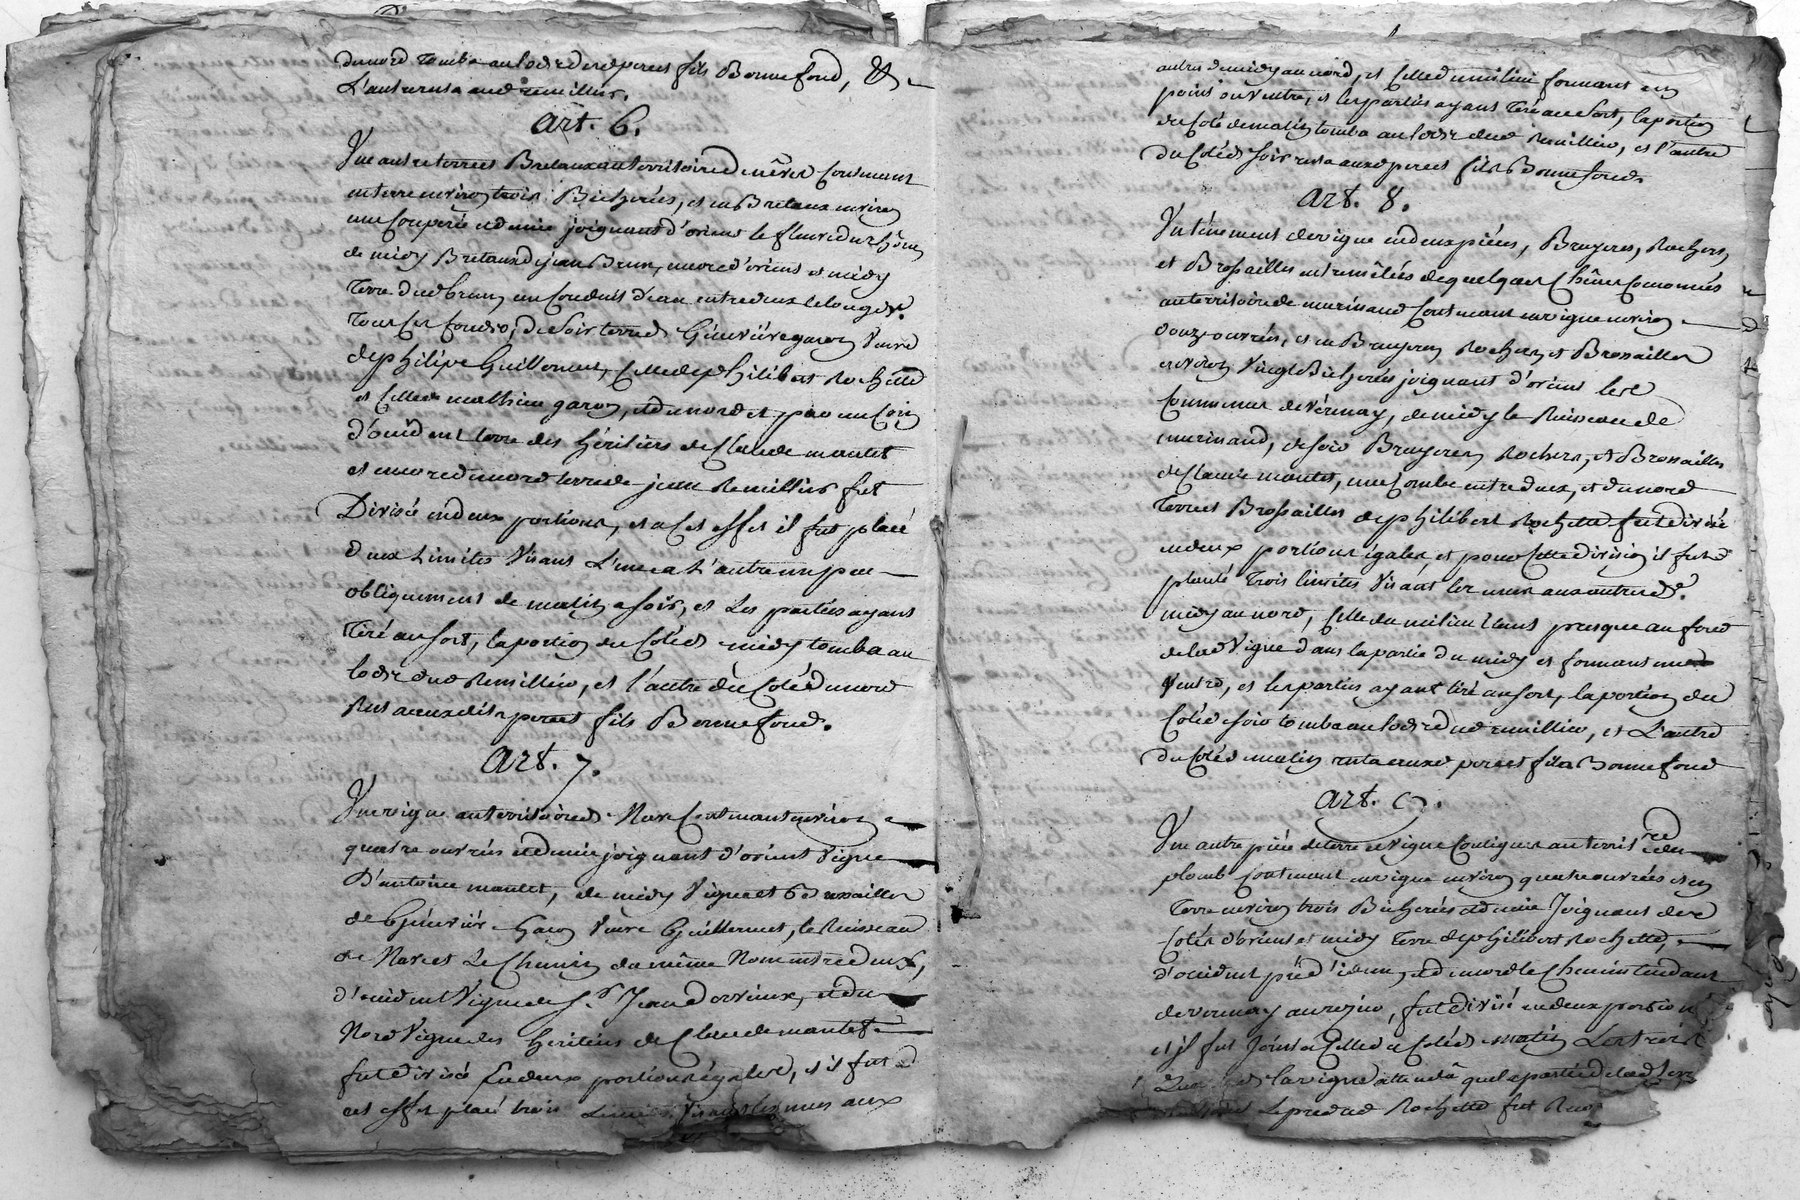 du nord tomba au lot desd. pere et fils Bonnefond, &
L'autre resta aud remillier.
Art. 6.
Une autre terre et Bretaux au territoire de nêvet Contenant
en terre environ trois Bicherées, et en Bretaux environ
une Couperée et demie joignant d'orient le fleuve du rhône
de midy Bretaux de jean Brun, encore d'orient et midy
terre dud brun, un Conduit d'eau entredeux le long de
tout ces fonds, de soir terre de Génévièvre garon Veuve
de philipe Guillermet, Celle de philibert Rochette
et Celle de mathieu garon, et de nord et par un Coin
d'occident terre des héritiers de Claude mantet
et encore de nord terre de jean Remillier fut
Divisée en deux portions, et a Cet effet il fut placé
deux Limites Visant L'une a L'autre un peu
obliquement de matin a soir, et Les parties ayant
tiré au sort, la portion du Coté de midy tomba au
lot dud Remillier, et l'autre du Coté du nord
resta auxdits pere et fils Bonnefond.
Art. 7.
Une vigne au territoire de Nave Contenant environ
quatre ouvrées et demie joignant d'orient Vigne
D'antoine mantet, de midy Vigne et Brossailles
de Génévièvre Garon Veuve Guillermet, le Ruisseau
de Nave et Le Chemin du même Nom entredeux,
d'occident Vigne de Sr. Jean Dorvieux, et du
Nord Vigne des héritiers de Claude mantet
fut divisée En deux portions égales, et il fut a
cet effet placé trois Limites Visant les unes aux
autres de midy au nord, et Celle du milieu formant un
point ou Ventre, et les parties ayant tiré au sort, la portion
du Coté de matin tomba au lot dud Remillier, et l'autre
du Coté de soir resta auxd pere et fils Bonnefond.
Art. 8.
Un ténement de vigne en deux pièces, Bruyeres, Rochers,
et Brossailles entremêlées de quelques Chênes Couronnés
au territoire de murinand Contenant en vigne environ
douze ouvrées, et en Bruyeres Rochers et Brossailles
environ Vingt Bicherées joignant d'orient les
Communes de vérenay, de midy le Ruisseau de
murinand, de soir Bruyeres, Rochers, et Brossailles
de Claude mantet, une Combe entredeux, et du nord
terre et Brossailles de philibert Rochette fut divisé
en deux portions égales, et pour Cette division il fut
planté trois limites Visant les unes aux autres de
midy au nord, Celle du milieu étant presque au fond
de lad Vigne dans la partie du midy et formant un
Ventre, et les parties ayant tiré au sort, la portion du
Coté de soir tomba au lot dud remillier, et L'autre
du Coté de matin resta auxd pere et fils Bonnefond
Art. 9.
Une autre pièce de terre et vigne Contigues au territre du
plomb Contenant en vigne environ quatre ouvrées et en
terre environ trois Bicherées et demie Joignant de
Cotés d'orient et midy terre de philibert Rochette,
d'occident pré d'idem, et de nord le Chemin tendant
de verenay au rozier, fut divisé en deux portions
et il fut Joint a Celle du Coté de matin Les trois
de la vigne attendu que la partie de lad terre
Le pred Rochette fut